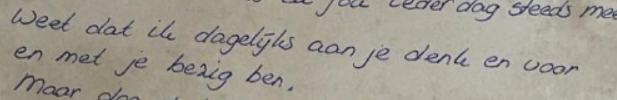 jou ieder dag steeds mee
Weet dat ik dagelijks aan je denk en voor
en met je bezig ben.
Maar